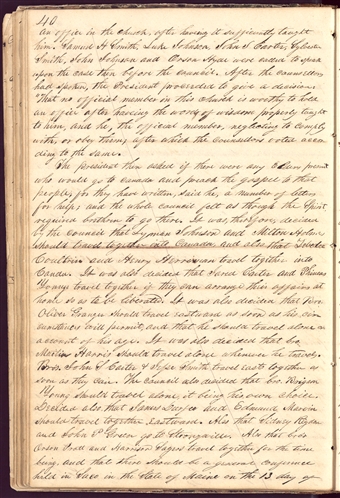 40.
an office in the church, after having it sufficiently taught
him. Samuel H Smith, Luke Johnson, John S Carter, Sylvester
Smith, John Johnson and Orson Hyde were called to speak
upon the case then before the council. After the counsellors
had spoken, the President proceeded to give a decision:
That no official member in this church is worthy to hold
an office after having the word of wisdom properly taught
to him, and he, the official member, neglecting to comply
with, or obey them; after which the counsellors voted accor
ding to the same.
The President then asked if there were any Elders present
who would go to Canada and preach the gospel to that
people; for they have written, said he, a number of letters
for help: and the whole council felt as though the Spirit
required brethren to go there. It was therefore, decided
by the council that Lyman Johnson and Milton Holmes
should travel together into Canada; and also that Zebedee
Coultrin and Henry Herriman travel together into
Canada. It was also decided that Jared Carter and Phineas
Young travel together if they can arrange their affairs at
home so as to be liberated. It was also decided that bro.
Oliver Granger should travel eastward as soon as his circ
umstances will permit, and that he should travel alone on
account of his age. It was also decided that bro
Martin Harris should travel alone whenever he travels.
Bros. John S Carter & Jesse Smith travel east together as
soon as they can. The council also decided that bro Brigham
Young should travel alone, it being his own choice.
Decided also that James Durfee and Edward Marvin
should travel together eastward. Also that Sidney Rigdon
and John P Green go to Strongsville. Also that bros
Orson Pratt and Harrison Sagers travel together for the time
being, and that there should be a general conference
held in Saco in the State of Maine on the 13 day of